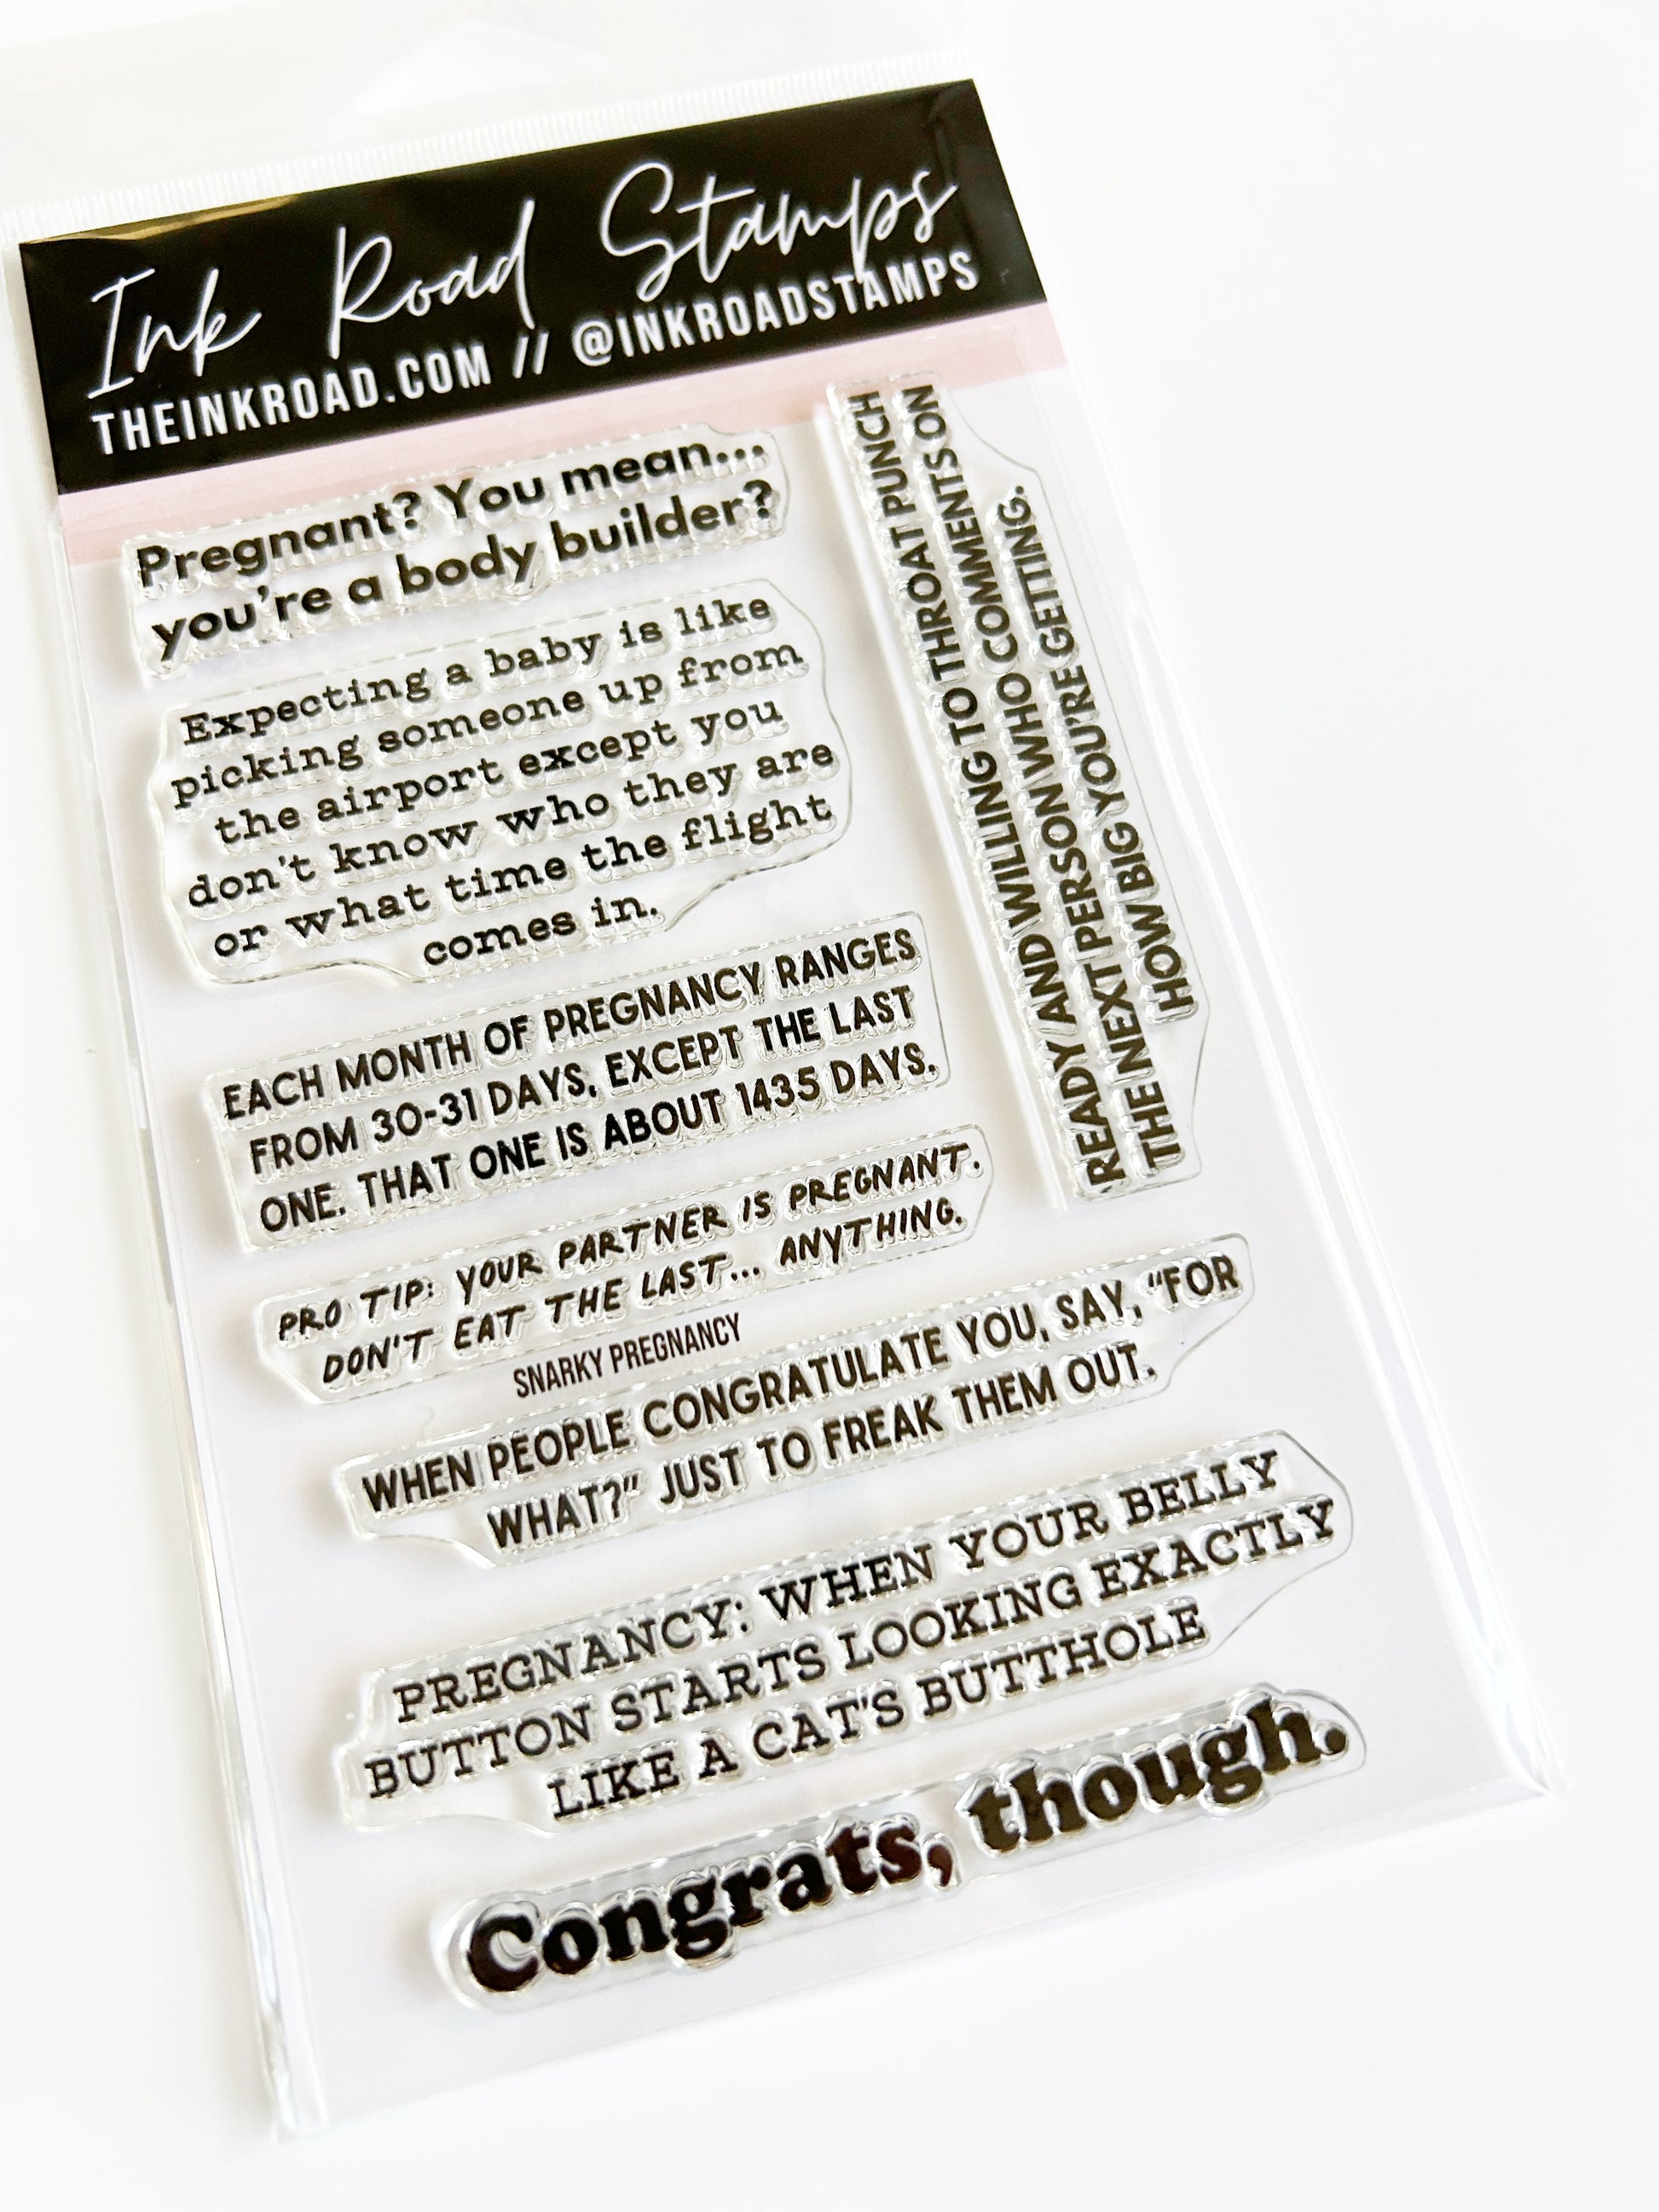 Ink Road Stamps
THEINKROAD.COM // @INKROADSTAMPS
Pregnant? You mean...
you're a body builder?
Expecting a baby is like
picking someone up from
the airport except you
don't know who they are
or what time the flight
comes in.
READY AND WILLING TO THROAT PUNCH
THE NEXT PERSON WHO COMMENTS ON
HOW BIG YOU'RE GETTING.
EACH MONTH OF PREGNANCY RANGES
FROM 30-31 DAYS, EXCEPT THE LAST
ONE. THAT ONE IS ABOUT 1435 DAYS.
PRO TIP: YOUR PARTNER IS PREGNANT.
DON'T EAT THE LAST... ANYTHING.
SNARKY PREGNANCY
WHEN PEOPLE CONGRATULATE YOU, SAY, "FOR
WHAT?" JUST TO FREAK THEM OUT.
PREGNANCY: WHEN YOUR BELLY
BUTTON STARTS LOOKING EXACTLY
LIKE A CAT'S BUTTHOLE
Congrats, though.